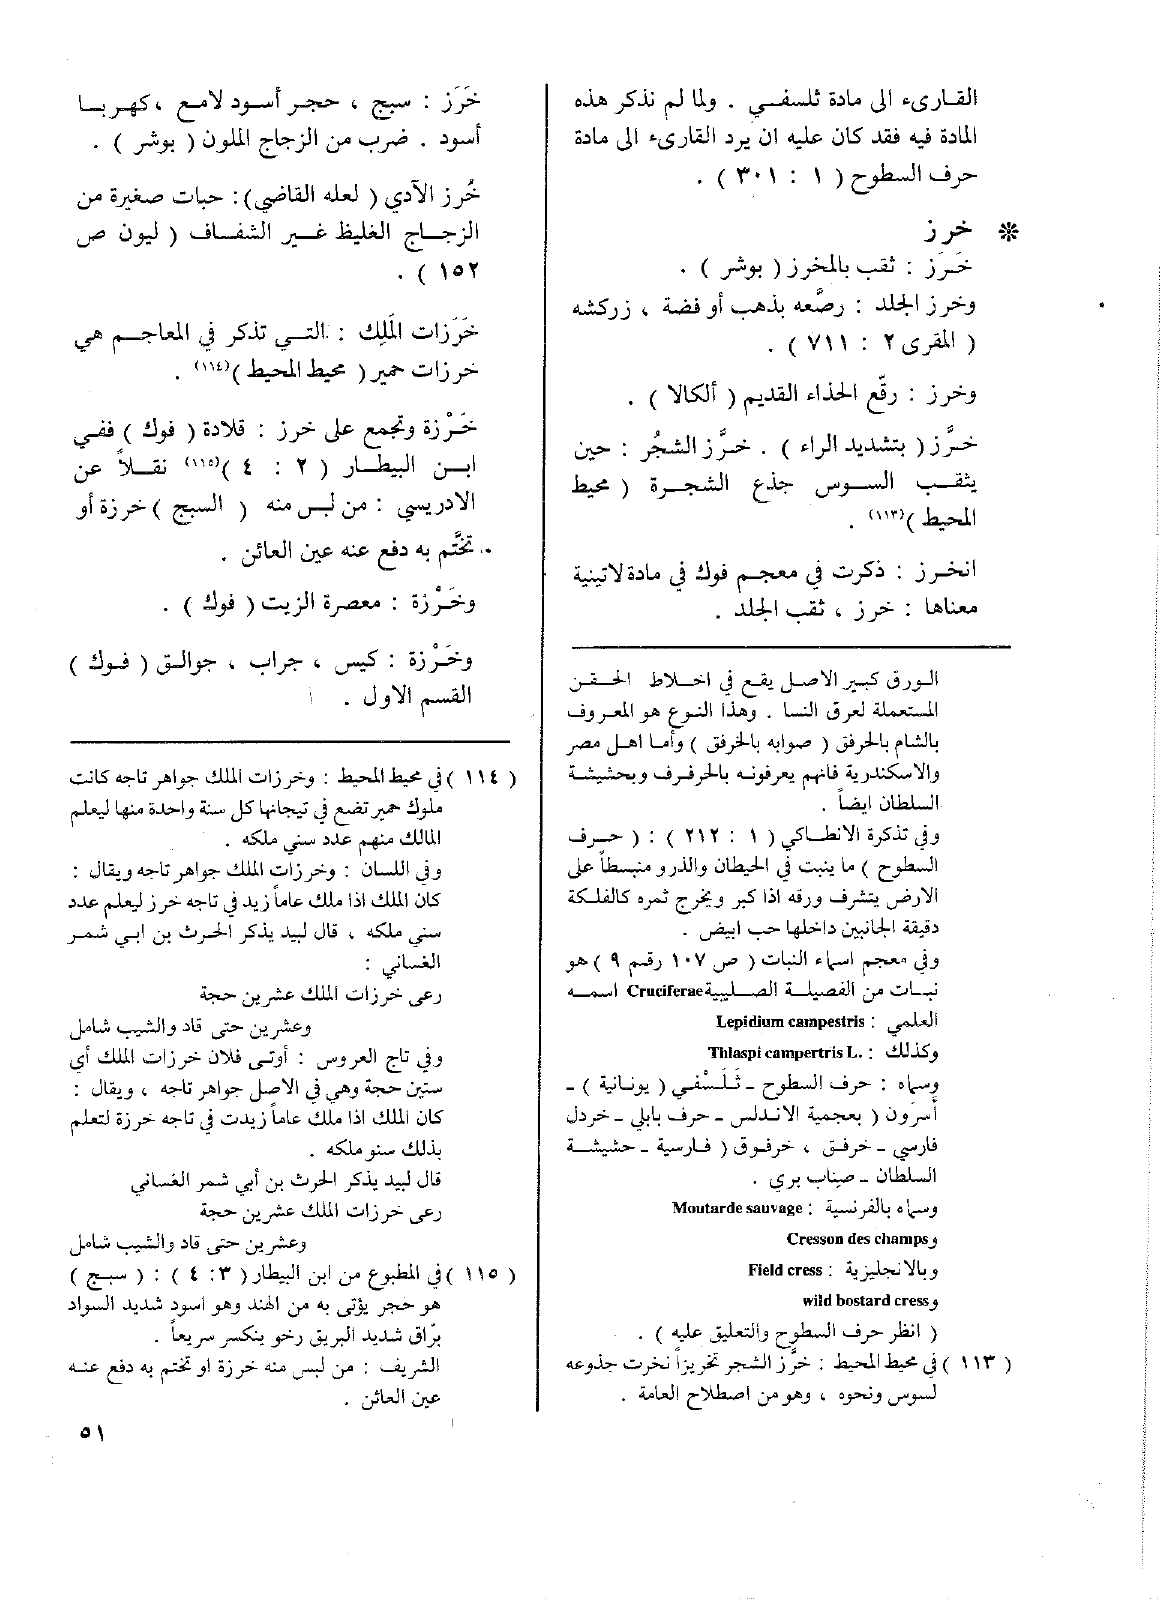 القارىء الى مادة ثلسفي . ولما لم نذكر هذه
المادة فيه فقد كان عليه ان يرد القارىء الى مادة
حرف السطوح ( ١ : ٣٠١ ) .
* خرز
خَرَز : ثقب بالمخرز ( بوشر ) .
وخرز الجلد : رصَّعه بذهب أو فضة ، زركشه
( المقرى ٢ : ٧١١ ) .
وخرز : رقّع الحذاء القديم ( ألكالا ) .
خرَّز ( بتشديد الراء ) . خرَّز الشجُر : حين
يثقب السوس جذع الشجرة ( محيط
المحيط )(١١٣) .
انخرز : ذكرت في معجم فوك في مادة لاتينية
معناها : خرز ، ثقب الجلد .
الورق كبير الاصل يقع في اخلاط الحقن
المستعملة لعرق النسا . وهذا النوع هو المعروف
بالشام بالحرفق ( صوابه بالخرفق ) وأما اهل مصر
والاسكندرية فانهم يعرفونه بالخرفرف وبحشيشة
السلطان ايضاً .
وفي تذكرة الانطاكي ( ١ : ٢١٢ ) : ( حرف
السطوح ) ما ينبت في الحيطان والذرو منبسطاً على
الارض يتشرف ورقه اذا كبر ويخرج ثمره كالفلكة
دقيقة الجانبين داخلها حب ابيض .
وفي معجم اسماء النبات ( ص ١٠٧ رقم ٩ ) هو
نبات من الفصيلة الصليبية Cruciferae اسمه
العلمي : Lepidium campestris
وكذلك : Thlaspi campertris L.
وسماه : حرف السطوح - ثَلَسْفي ( يونانية ) -
أسرَون ( بعجمية الاندلس - حرف بابلي - خردل
فارسي - خرفق ، خرفوق ( فارسية - حشيشة
السلطان - صناب بري .
وسماه بالفرنسية : Moutarde sauvage
وCresson des champs
وبالانجليزية : Field cress
وwild bostard cress
( انظر حرف السطوح والتعليق عليه ) .
( ١١٣ ) في محيط المحيط : خرَّز الشجر تخريزاً نخرت جذوعه
لسوس ونحوه ، وهو من اصطلاح العامة .
خَرَز : سبج ، حجر أسود لامع ، كهربا
أسود . ضرب من الزجاج الملون ( بوشر ) .
خُرز الآدي ( لعله القاضي ) : حبات صغيرة من
الزجاج الغليظ غير الشفاف ( ليون ص
١٥٢ ) .
خَرَزات المَلِك : التي تذكر في المعاجم هي
خرزات حمير ( محيط المحيط )(١١٤) .
خَرْزة وتجمع على خرز : قلادة ( فوك ) ففي
ابن البيطار ( ٢ : ٤ )(١١٥) نقلاً عن
الادريسي : من لبس منه ( السبج ) خرزة أو
تختَّم به دفع عنه عين العائن .
وخَرْزة : معصرة الزيت ( فوك ) .
وخَرْزة : كيس ، جراب ، جوالق ( فوك )
القسم الاول .
( ١١٤ ) في محيط المحيط : وخرزات الملك جواهر تاجه كانت
ملوك حمير تضع في تيجانها كل سنة واحدة منها ليعلم
المالك منهم عدد سني ملكه .
وفي اللسان : وخرزات الملك جواهر تاجه ويقال :
كان الملك اذا ملك عاماً زيد في تاجه خرز ليعلم عدد
سني ملكه ، قال لبيد يذكر الحرث بن ابي شمر
الغساني :
رعى خرزات الملك عشرين حجة
وعشرين حتى قاد والشيب شامل
وفي تاج العروس : أوتى فلان خرزات الملك أي
ستين حجة وهي في الاصل جواهر تاجه ، ويقال :
كان الملك اذا ملك عاماً زيدت في تاجه خرزة لتعلم
بذلك سنو ملكه .
قال لبيد يذكر الحرث بن أبي شمر الغساني
رعى خرزات الملك عشرين حجة
وعشرين حتى قاد والشيب شامل
( ١١٥ ) في المطبوع من ابن البيطار ( ٣ : ٤ ) : ( سبج )
هو حجر يؤتى به من الهند وهو اسود شديد السواد
برّاق شديد البريق رخو ينكسر سريعاً .
الشريف : من لبس منه خرزة او تختم به دفع عنه
عين العائن .
٥١